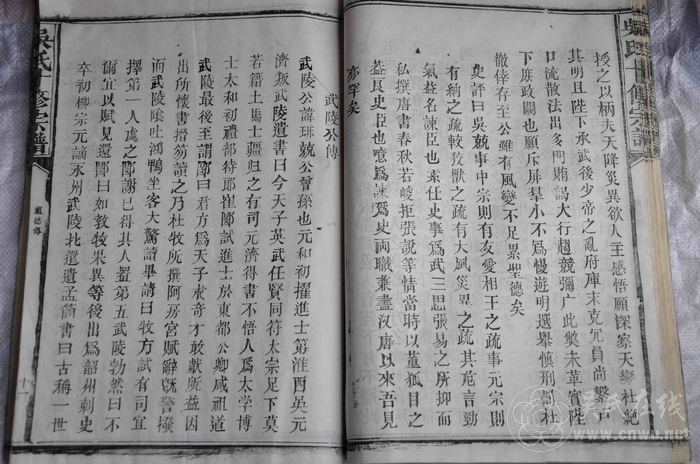 吳氏十修宗譜
授之以柄夫天降災異欲人主感悟願深察天變杜絕
其明且陛下承武後少帝之亂府庫未充冗員尚繁戶
口流散法出多門賄謁大行趨競彌广此獘未革實陛
下庶政闕也願斥屏羣小不爲慢遊明選舉慎刑罰杜
徹倖存至公雖有風變不足累聖德矣
史評曰吳兢事中宗則有友愛相王之疏事元宗則
有納之疏較獸之疏有大風災異之疏其危言勁
氣益名諫臣也素任史事爲武三思張易之所抑而
私撰唐書春秋若峻拒張說等情當時以董狐目之
益良史臣也噫爲諫爲史両職兼盡汉唐以來吾見
亦罕矣
武陵公傳
武陵公諱珠兢公曾孫也元和初擢進士第淮西吳元
濟叛武陵遺書曰今天子英武任賢同符太宗足下莫
若籍土士疆归之有司元濟得書不悟人爲太學博
士太和初禮部侍郎崔郾試進士於東都公卿咸祖道
武陵最後至謂郾曰君方爲天子求奇才敢獻所益因
出所懷書搢笏讀之乃杜牧所撰阿房宮賦辭旣警拔
而武陵吐鴻鴨坐客大驚讀畢請曰牧方試有司宜
擇第一人處之郾謝已得其人置第五武陵勃然曰不
爾宜以賦見還郾曰如教牧果異等後出爲韶州刺史
卒初柳宗元謫永州武陵北還遺孟簡書曰古稱一世
吳氏十修宗譜
德傳
十一
吴氏在线
www.cnwu.net